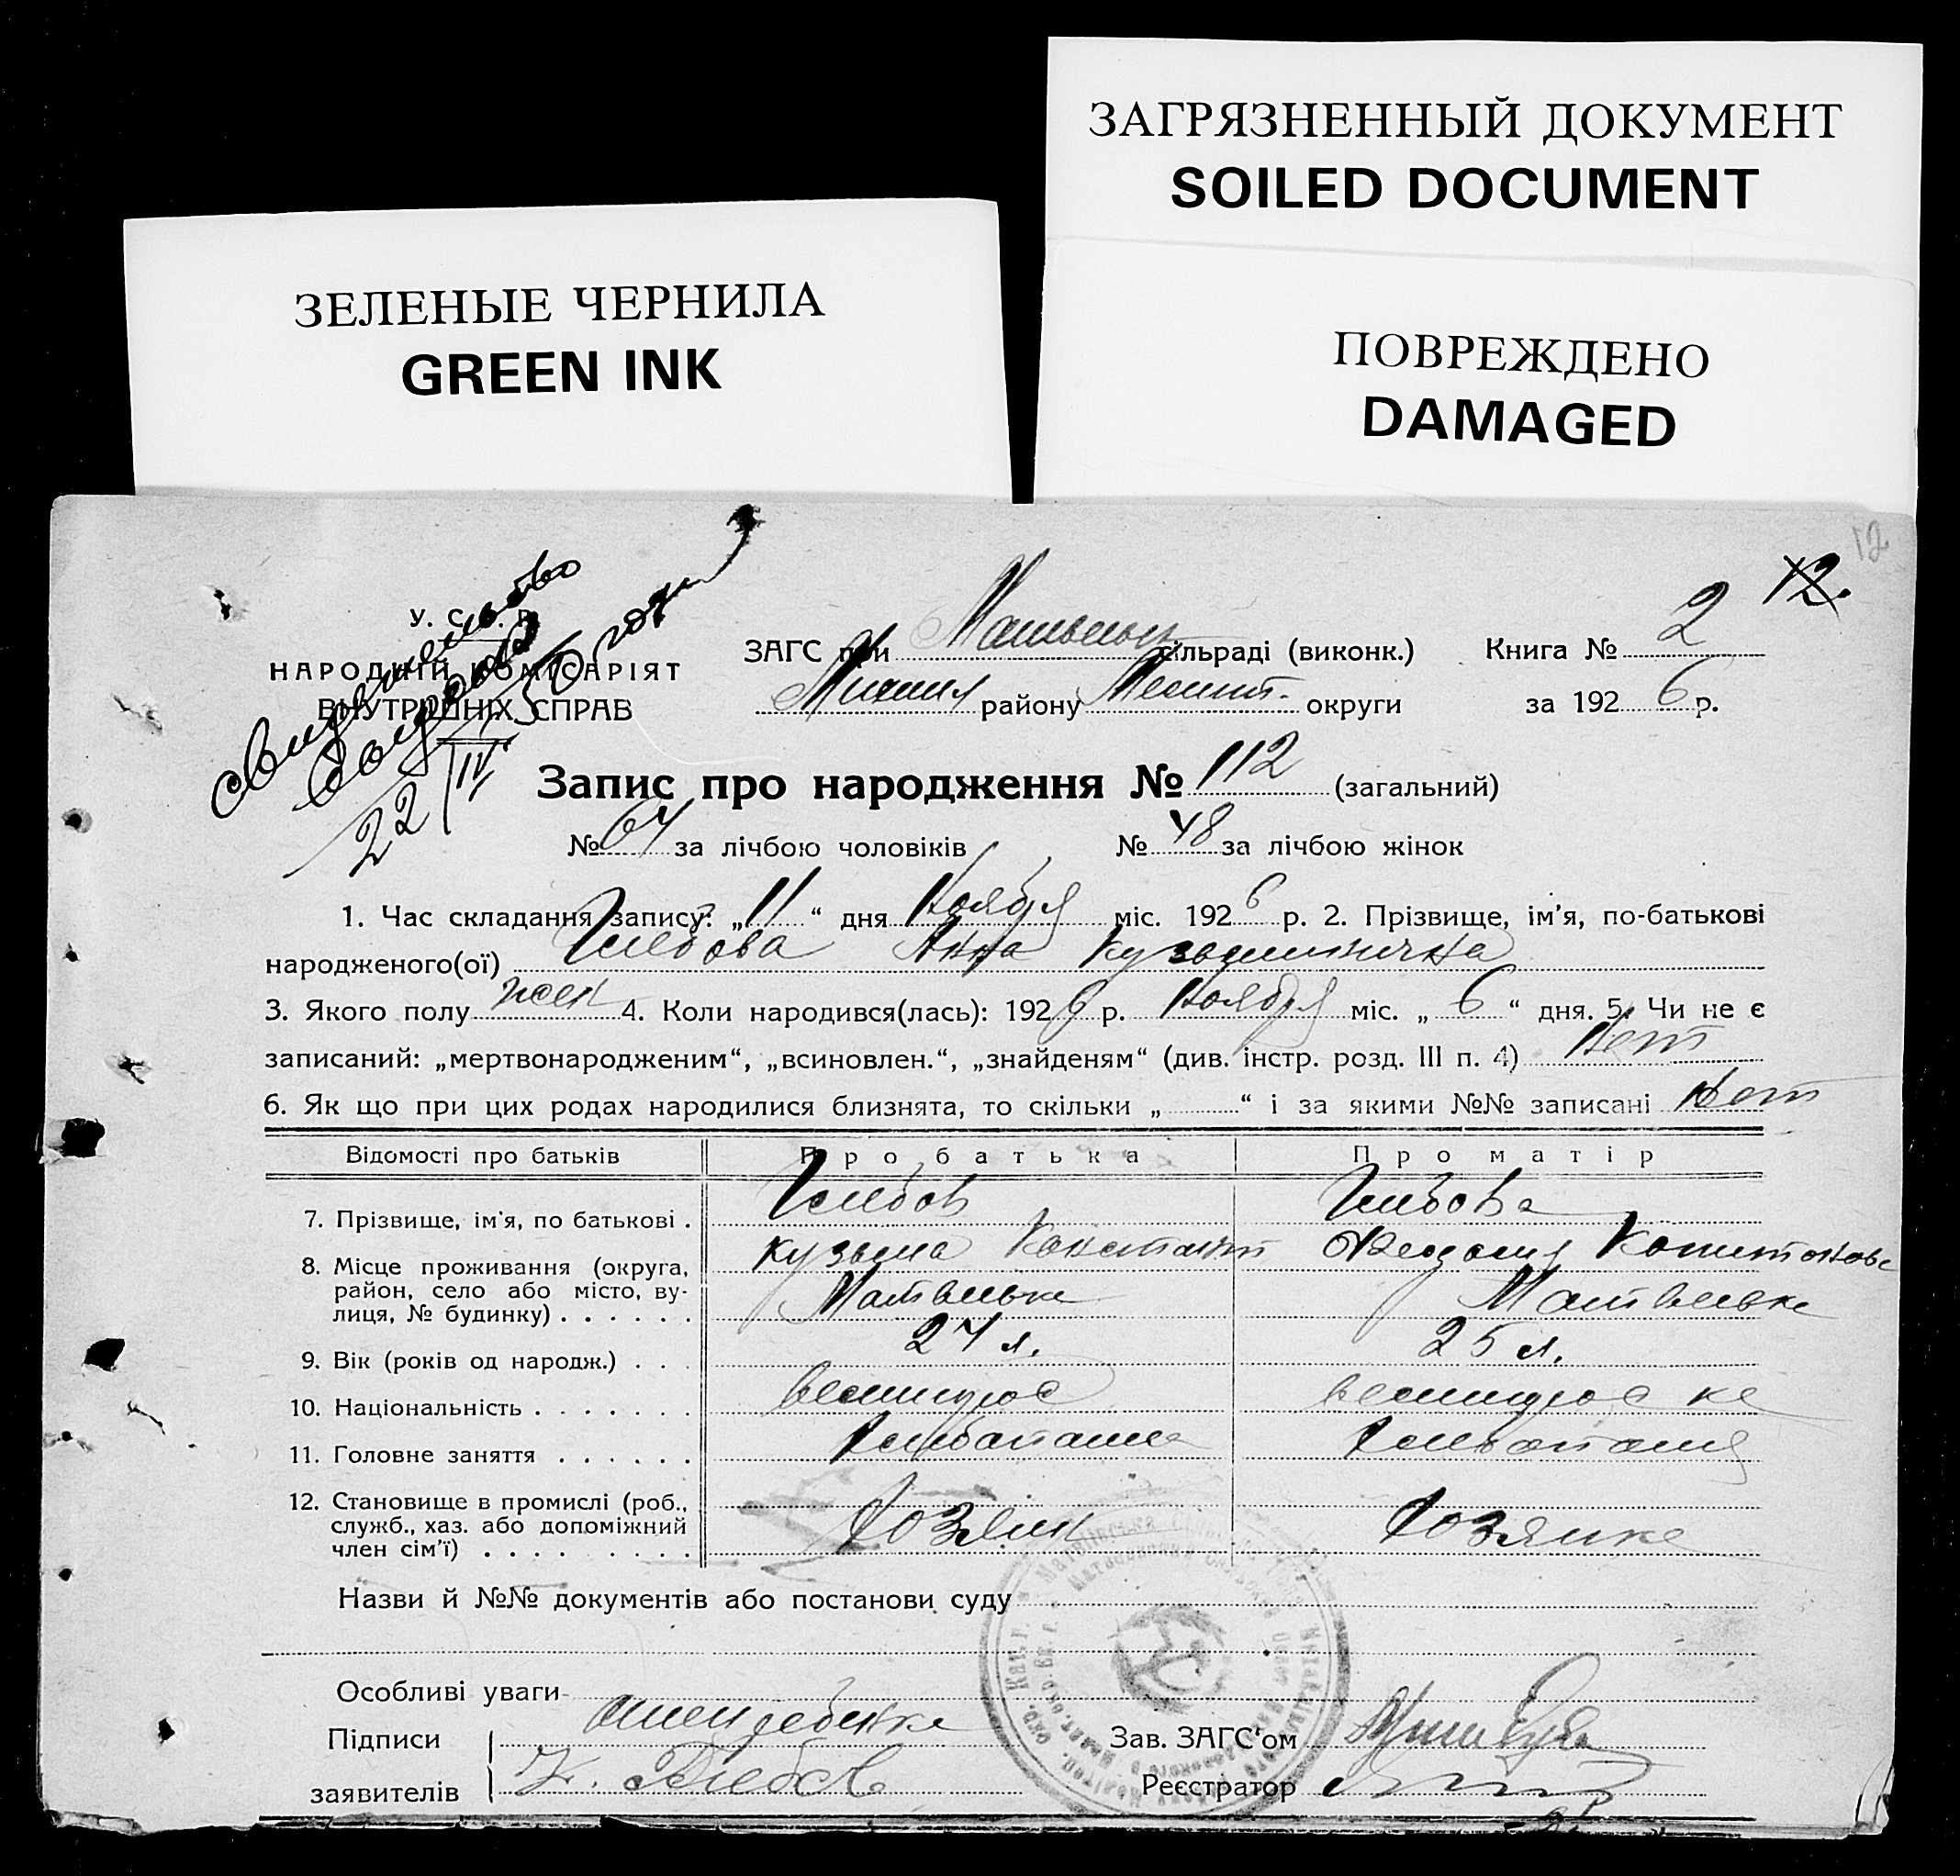 ЗАГРЯЗНЕННЫЙ ДОКУМЕНТ
SOILED DOCUMENT
ЗЕЛЕНЫЕ ЧЕРНИЛА
GREEN INK
ПОВРЕЖДЕНО
DAMAGED
12
12.
свидетельство
выдано
22/IV 50 года
У. С. Р. Р.
НАРОДНІЙ КОМІСАРІЯТ
ВНУТРІШНІХ СПРАВ
ЗАГС при сільраді (виконк.) Книга № 2
району округи за 1926 р.
Запис про народження № 112 (загальний)
№ 64 за лічбою чоловіків № 48 за лічбою жінок
1. Час складання запису: „11“ дня Ноября міс. 1926 р. 2. Прізвище, ім'я, по-батькові
народженого(ої) Глебова Анна Кузьминична
3. Якого полу жен 4. Коли народився(лась): 1926 р. Ноября міс. „6“ дня. 5. Чи не є
записаний: „мертвонародженим“, „всиновлен.“, „знайденям“ (див. інстр. розд. III п. 4) Нет
6. Як що при цих родах народилися близнята, то скільки „ “ і за якими №№ записані Нет
Відомості про батьків Про батька Про матір
7. Прізвище, ім'я, по батькові . Глебов Глебова
Кузьма Констант Феодосия
8. Місце проживання (округа,
район, село або місто, ву-
лиця, № будинку) . . . . . . Матвеевка Матвеевка
9. Вік (років од народж.) . . . 27 л. 25 л.
10. Національність . . . . . . . великорос великороска
11. Головне заняття . . . . . . Хлебопашец
12. Становище в промислі (роб.,
служб., хаз. або допоміжний
член сім'ї) . . . . . . . . . Хозяин Хозяйка
Назви й №№ документів або постанови суду
Особливі уваги
Підписи
заявителів К. Глебов
Зав. ЗАГС'ом
Реєстратор